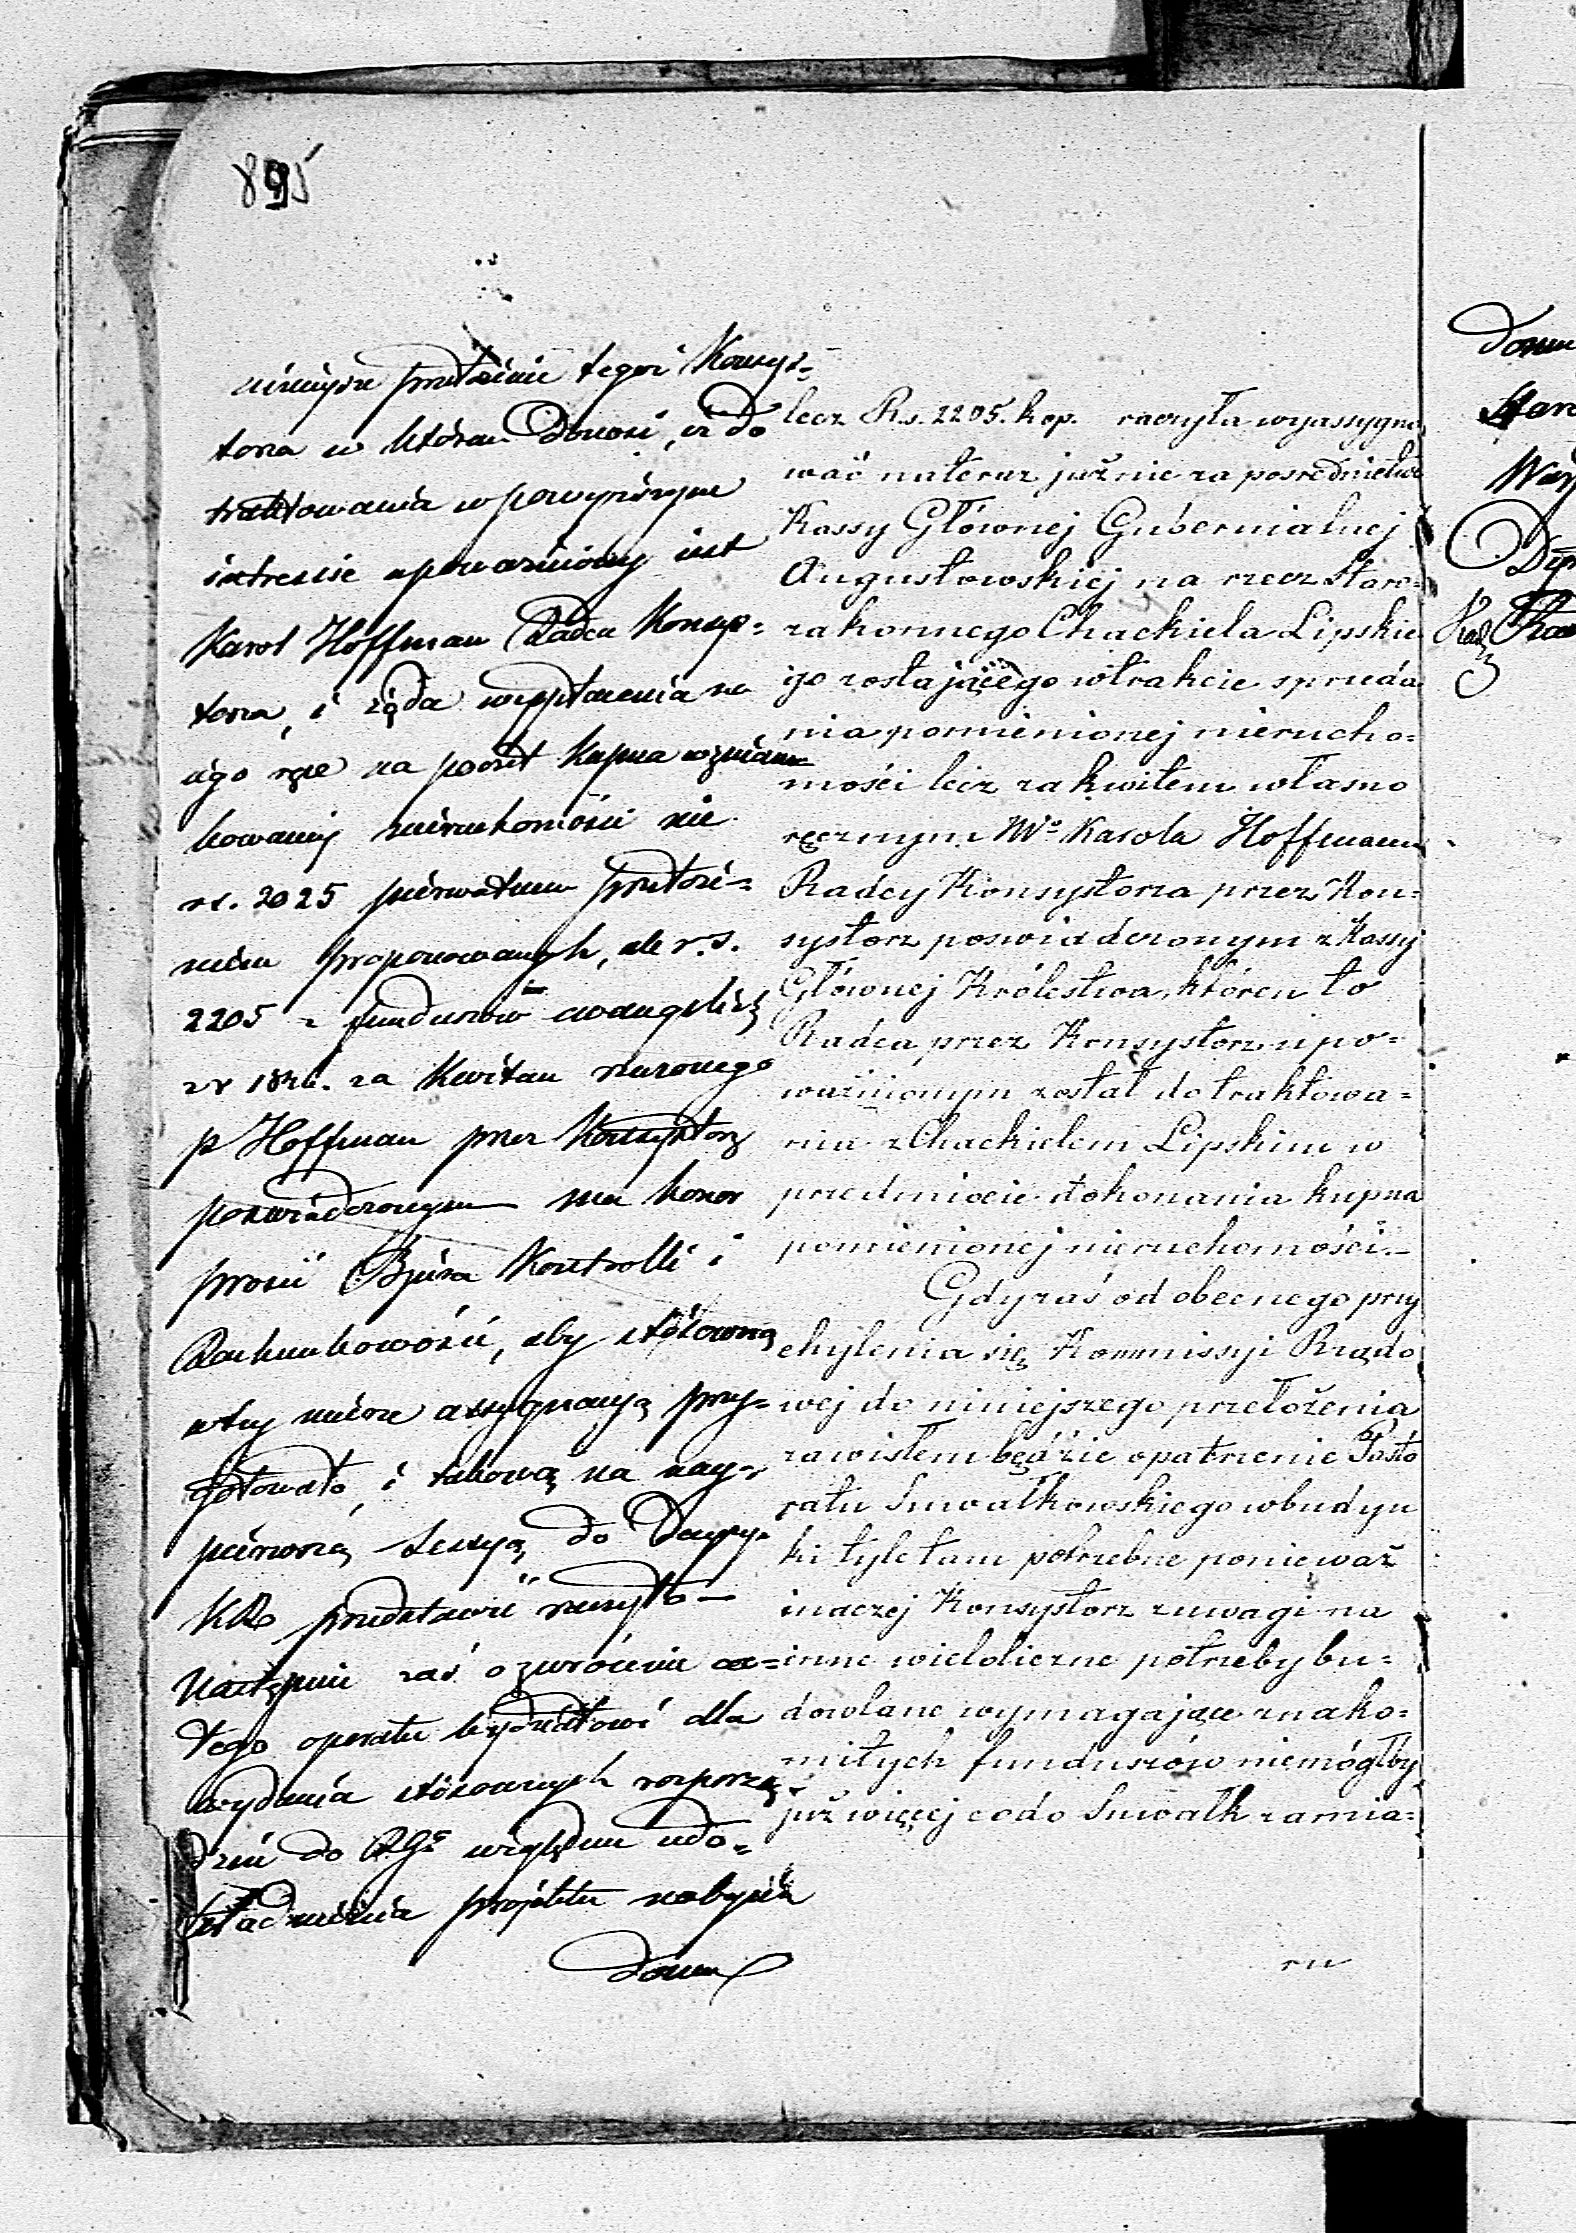 895
niniejsze przełożenie tegoż Konsys=
torza w którem Donosi, iż do
traktowania w powyższym
interesie upoważniony jest
Karol Hoffman Radca Konsys=
torza, i żąda wypłacenia na
iego ręce na poczet kupna
kowaney nieruchomości nie
rs. 2025 pierwotnem przełoże=
niem proponowanych, ale r.s.
2205 z funduszów
za kwitem rzeczonego
p Hoffman przez Konsystorz
poświadczonym ma honor
prosić Bjura Kontrolli i
Rachunkowości, aby stósowną
w tey mierze assygnacyą przy=
gotowało i takową na nay=
pierwszą Sessyą do Decyzyi
KR przedstawić raczyło —
Następnie zaś o zwrócenie ca=
łego operatu Wydziałowi dla
wydania stósownych rozporzą
dzeń do RGo względem udo=
kładnienia projektu nabycia
Domu
lecz R.s. 2205. kop. raczyła wyassygno
wać nateraz już nie za posrednictwe
Kassy Głównej Gubernialnej
Augustowskiej na rzecz Staro=
zakonnego Chackiela Lipskie
go zostającego w trakcie sprzeda
nia pomienionej nierucho=
mości lecz za kwitem własno
ręcznym Wo Karola Hoffmann
Radcy Konsystorza przez Kon=
systorz poswiadczonym z Kassy
Głównej Królestwa, któren to
Radca przez Konsystorz upo=
ważnionym został do traktowa=
nia z Chackielem Lipskim w
przedmiocie dokonania kupna
pomienionej nieruchomości.—
Gdy zaś od obecnego przy
chylenia się Kommissyi Rządo
wej do niniejszego przełożenia
zawisłem będzie opatrzenie Pasto
ratu Suwałkowskiego w budyn
ki tyle tam potrzebne ponieważ
inaczej Konsystorz z uwagi na
inne wieloliczne potrzeby bu=
dowlane wymagające znako=
mitych funduszów niemógłby
już więcej co do Suwałk zamia=
ru